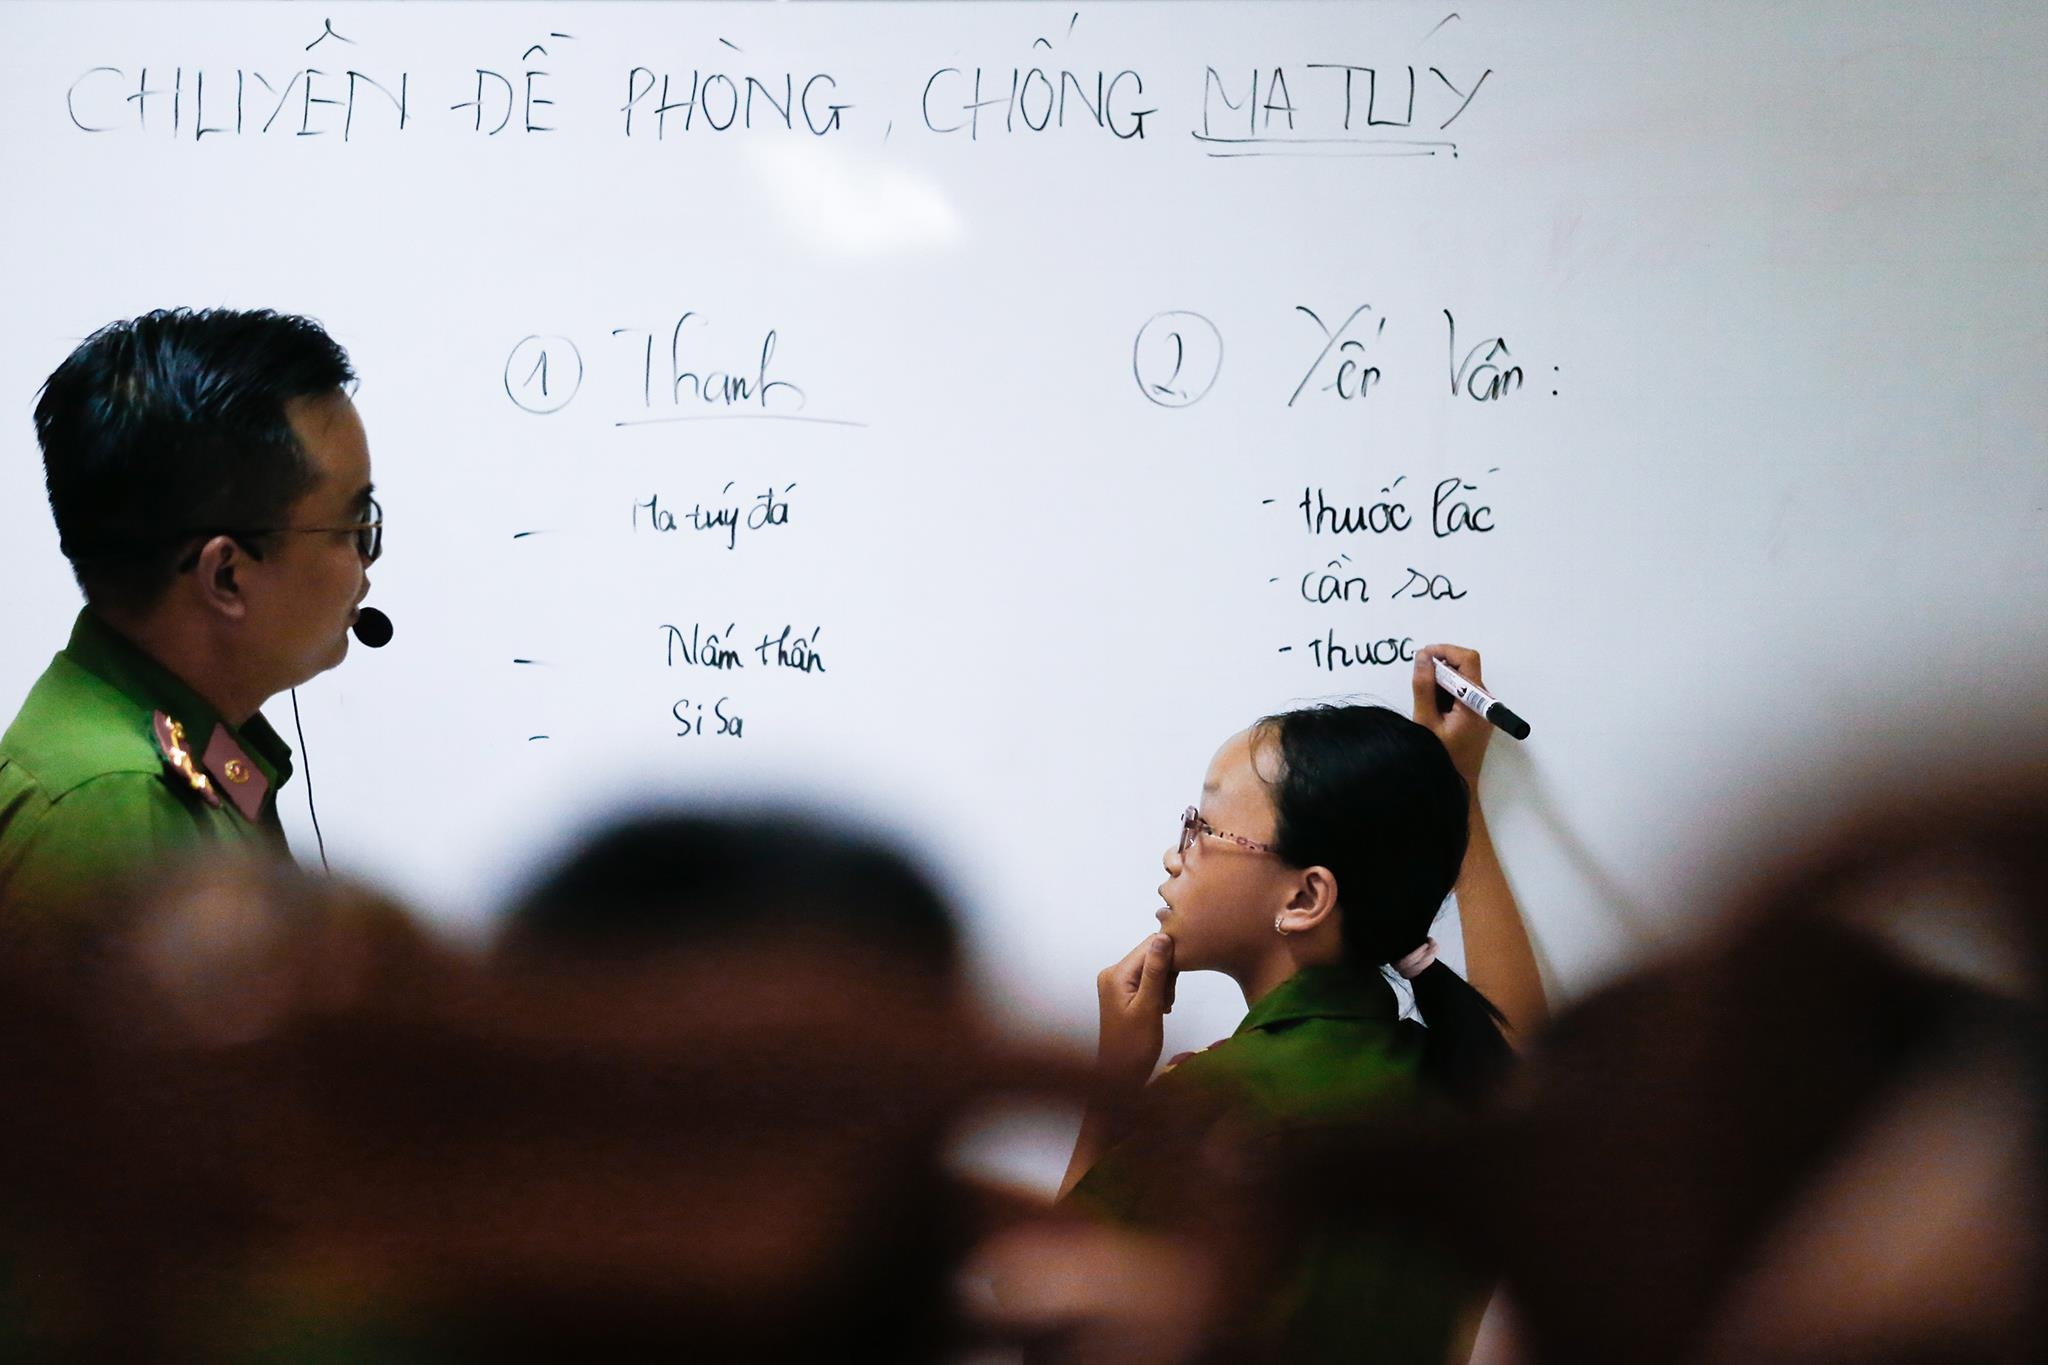 CHUYÊN ĐỀ PHÒNG, CHỐNG MA TUÝ
① Thanh
- Ma tuý đá
- Nấm thấn
- Si Sa
② Yến Vân:
- thuốc lắc
- cần sa
- thuoc